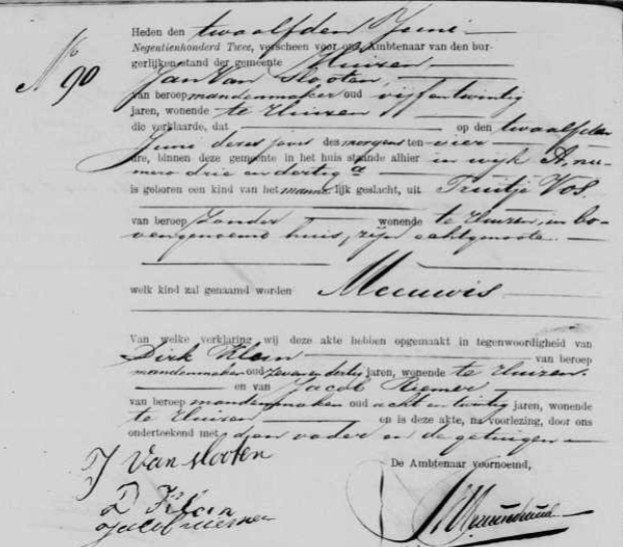 No 90
Heden den twaalfden Juni
Negentienhonderd Twee, verscheen voor ons Ambtenaar van den bur-
gerlijken stand der gemeente Huizen
Jan Van Slooten,
van beroep mandenmaker oud vijfentwintig
jaren, wonende te Huizen
die verklaarde, dat op den twaalfden
Juni dezes jaars des morgens ten vier
ure, binnen deze gemeente in het huis staande alhier in wijk A nu-
mero drie en dertig a
is geboren een kind van het mannelijk geslacht, uit Truitje Vos.
van beroep zonder wonende te Huizen, in bo-
vengenoemd huis, zijn echtgenoote.
welk kind zal genaamd worden Meeuwis
Van welke verklaring wij deze akte hebben opgemaakt in tegenwoordigheid van
Dirk Klein van beroep
mandenmaker oud zevenendertig jaren, wonende te Huizen.
en van Jacob Riemer
van beroep mandenmaker oud achtentwintig jaren, wonende
te Huizen en is deze akte, na voorlezing, door ons
onderteekend met den vader en de getuigen
J Van Slooten
De Ambtenaar voornoemd,
D Klein
Jacob Riemer